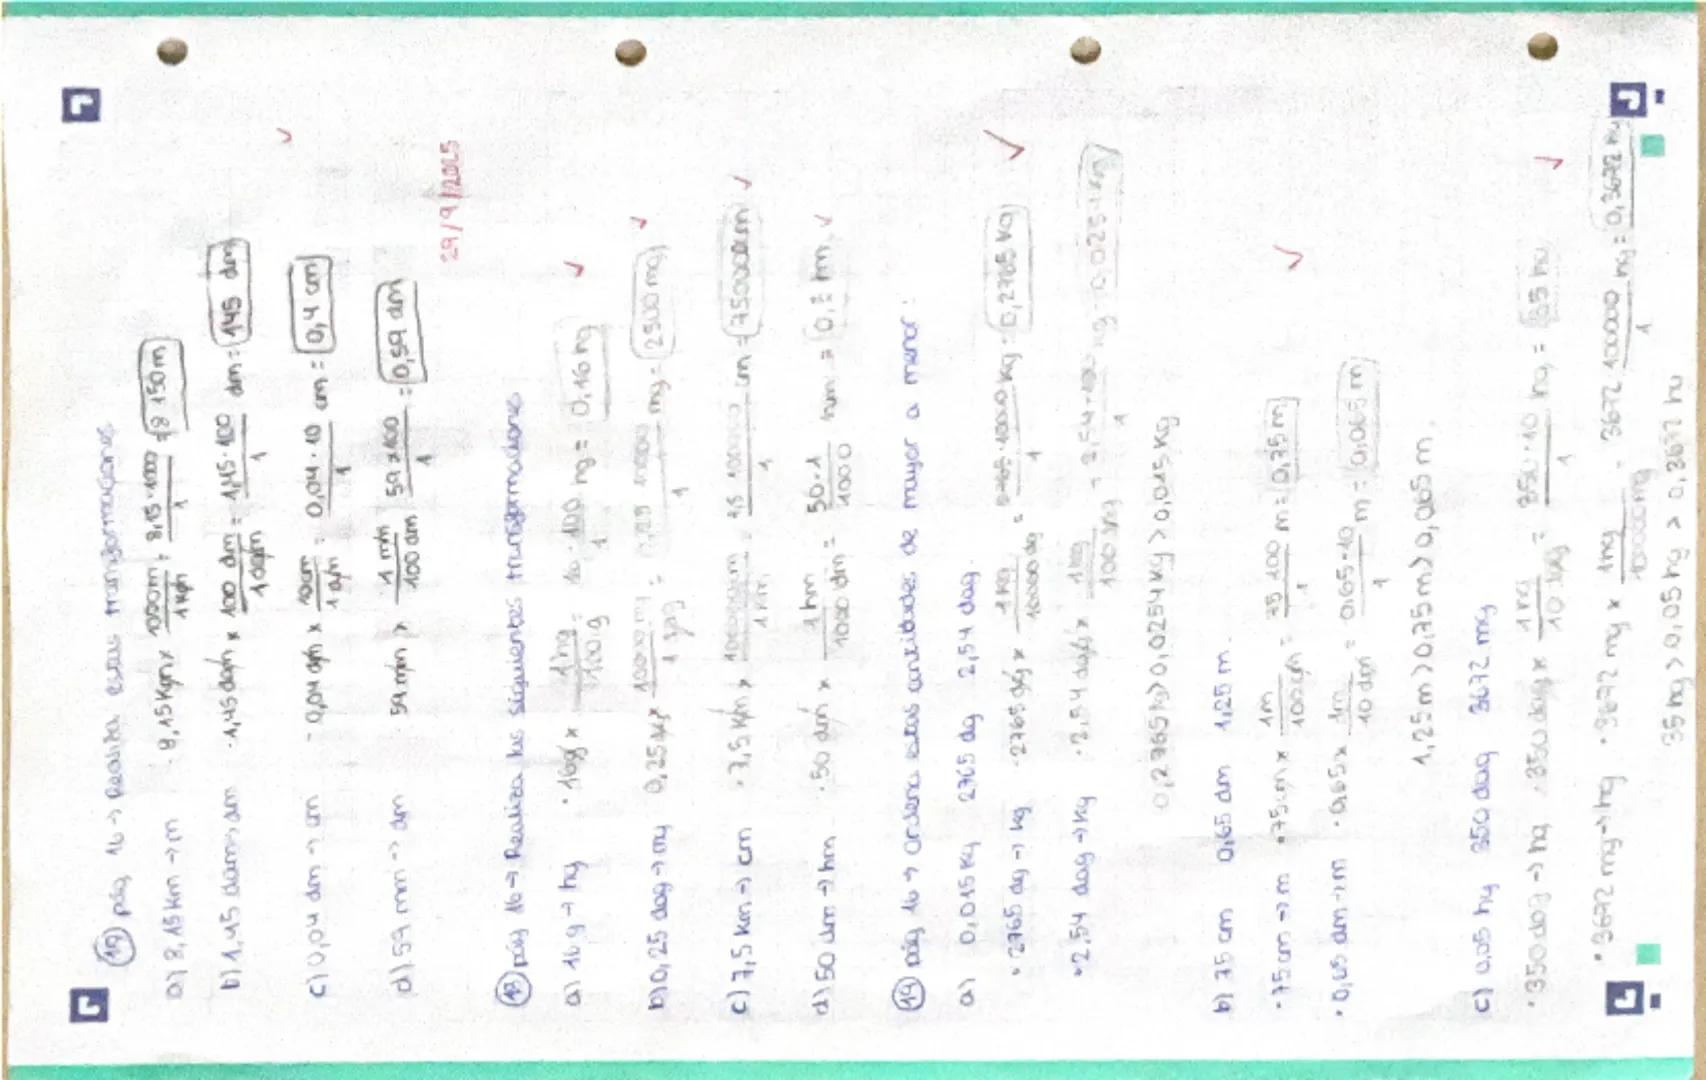 12 pág 16 → Realiza estas transformaciones
a) 8,15 km → m 8,15 Km x 1000m / 1 km = 8,15·1000 / 1 = 8 150 m
b) 1,45 dam → dm · 1,45 dam x 100 dm / 1 dam = 1,45·100 / 1 dm = 145 dm
c) 0,04 dm → cm · 0,04 dm x 10cm / 1 dm = 0,04·10 / 1 cm = 0,4 cm
d) 59 mm → dm 59 mm x 1 mm / 100 dm 59 x 100 / 1 = 0,59 dm
29/9/2025
13 pág 16 → Realiza las siguientes transformaciones
a) 16 g → hg · 16g x 1 hg / 100 g = 16·100 / 1 hg = 0,16 hg
b) 0,25 dag → mg 0,25 x 10000 mg / 1 = mg = 2500 mg
c) 7,5 km → cm · 7,5 Km x 1 km = 1 cm = 750000cm
d) 50 dm → hm · 50 dm x 1 hm / 1000 dm = 50·1 / 1000 hm = hm
14 pág 16 → Ordena estas cantidades de mayor a menor:
a) 0,015 Kg 2765 dg 2,54 dag.
· 2765 dg → kg · 2765 dg x 1 Kg / 10000 dg = 10000 / 1 Kg = 0,2765 Kg
· 2,54 dag → kg · 2,54 dag x 1 kg / 100 = 2,54· / 1 kg 0,0254 kg
0,2765 kg > 0,0254 kg > 0,015 Kg
b) 75 cm 0,65 dm 1,25 m.
· 75 cm → m · 75 cm x 1m / 100 cm = 75·100 / 1 m = 0,75 m
· 0,65 dm → m · 0,65 x 1m / 10 dm = 0,65·10 / 1 m = 0,065 m
1,25 m > 0,75 m > 0,065 m.
c) 0,05 hg 350 dag 3672 mg
· 350 dag → hg · 350 dag x 1 hg / 10 dag = 350·10 / 1 hg = 35 hg
· 3672 mg → hg · 3672 mg x 1 hg / 100000mg = 3672·100000 / 1 hg = 0,3672 hg
35 hg > 0,05 hg > 0,3672 hg